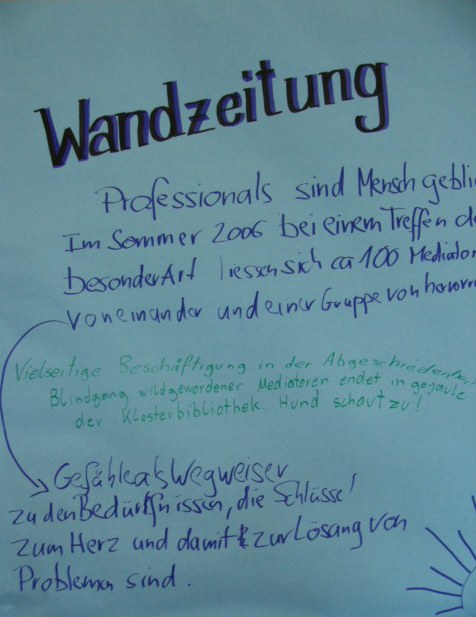 Wandzeitung
Professionals sind Mensch geblie
Im Sommer 2006 bei einem Treffen de
besonder Art liessen sich ca 100 Mediator
voneinander und einer Gruppe von honorr
Vielseitige Beschäftigung in der Abgeschiedenhei
Blindgang wildgewordener Mediatoren endet in gejaule
der Klosterbibliothek. Hund schaut zu!
Gefühle als Wegweiser
zu den Bedürfnissen, die Schlüssel
zum Herz und damit zur Lösung von
Problemen sind.